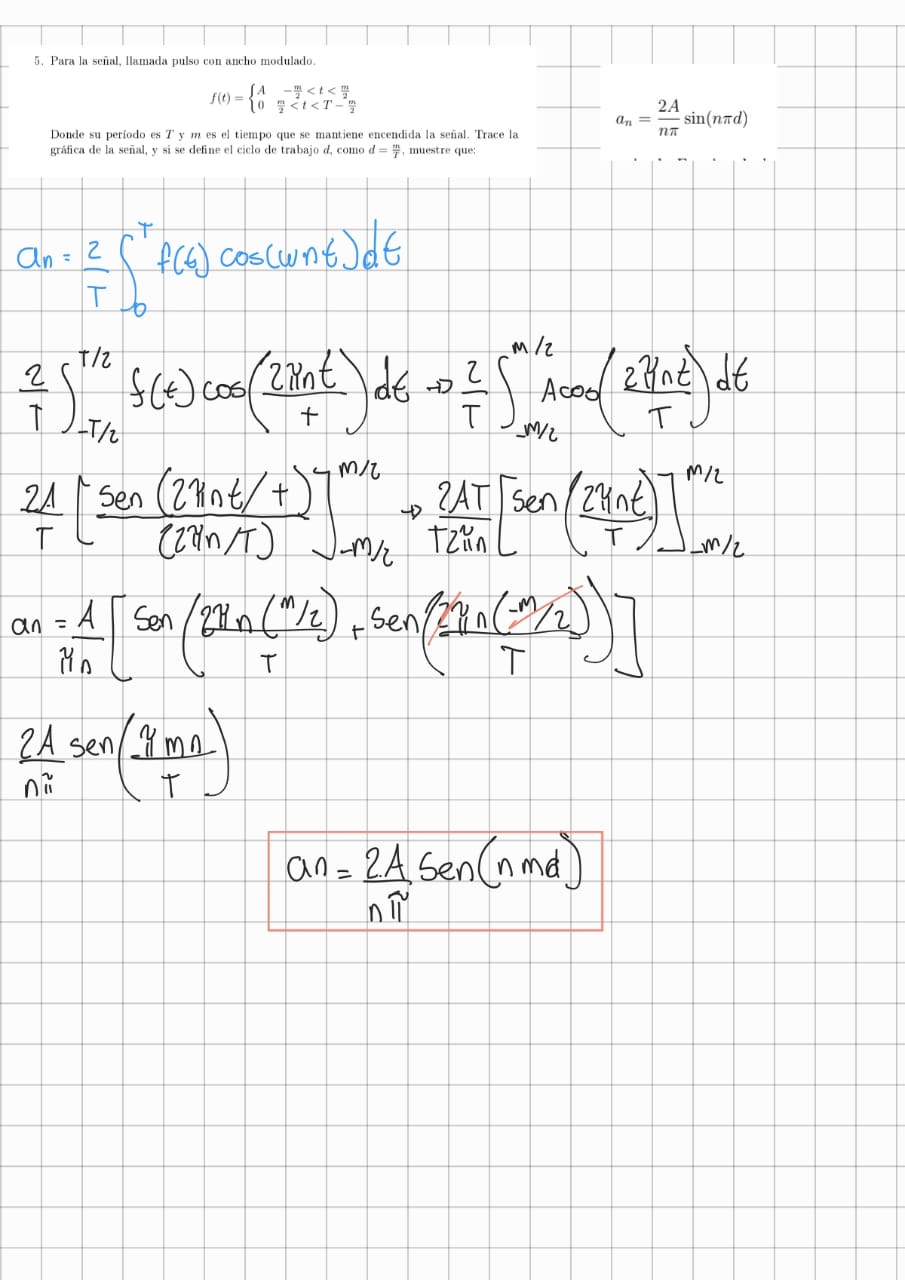 5. Para la señal, llamada pulso con ancho modulado.
f(t) = {A -m/2 < t < m/2
{0 m/2 < t < T - m/2
Donde su período es T y m es el tiempo que se mantiene encendida la señal. Trace la
gráfica de la señal, y si se define el ciclo de trabajo d, como d = m/T, muestre que:
a_n = 2A/nπ sin(nπd)
an = 2/T ∫_0^T f(t) cos(wnt)dt
2/T ∫_-T/2^T/2 f(t) cos(2πnt/T) dt → 2/T ∫_-m/2^m/2 A cos(2πnt/T) dt
2A/T [sen(2πnt/T)/(2πn/T)]_-m/2^m/2 → 2AT/T2πn [sen(2πnt/T)]_-m/2^m/2
an = A/πn [sen(2πn(m/2)/T) + sen(2πn(-m/2)/T)]
2A/nπ sen(πmn/T)
an = 2A/nπ sen(nmd)